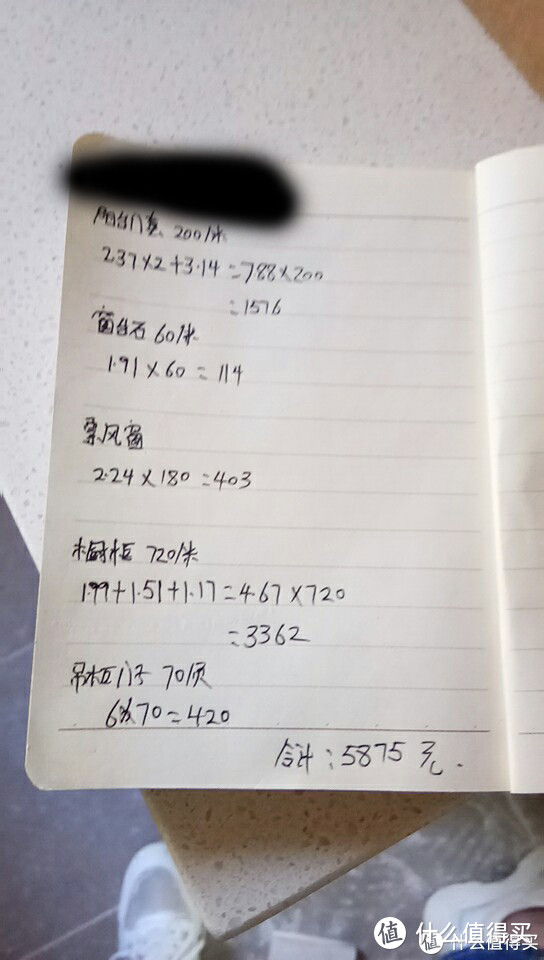 阳台门套 200/米
2.37×2+3.14=788×200
=1576
窗台石 60/米
1.91×60=114
飘风窗
2.24×180=403
橱柜 720/米
1.99+1.51+1.17=4.67×720
=3362
吊柜门子 70/页
6×70=420
合计:5875元.
值 什么值得买
值 什么值得买